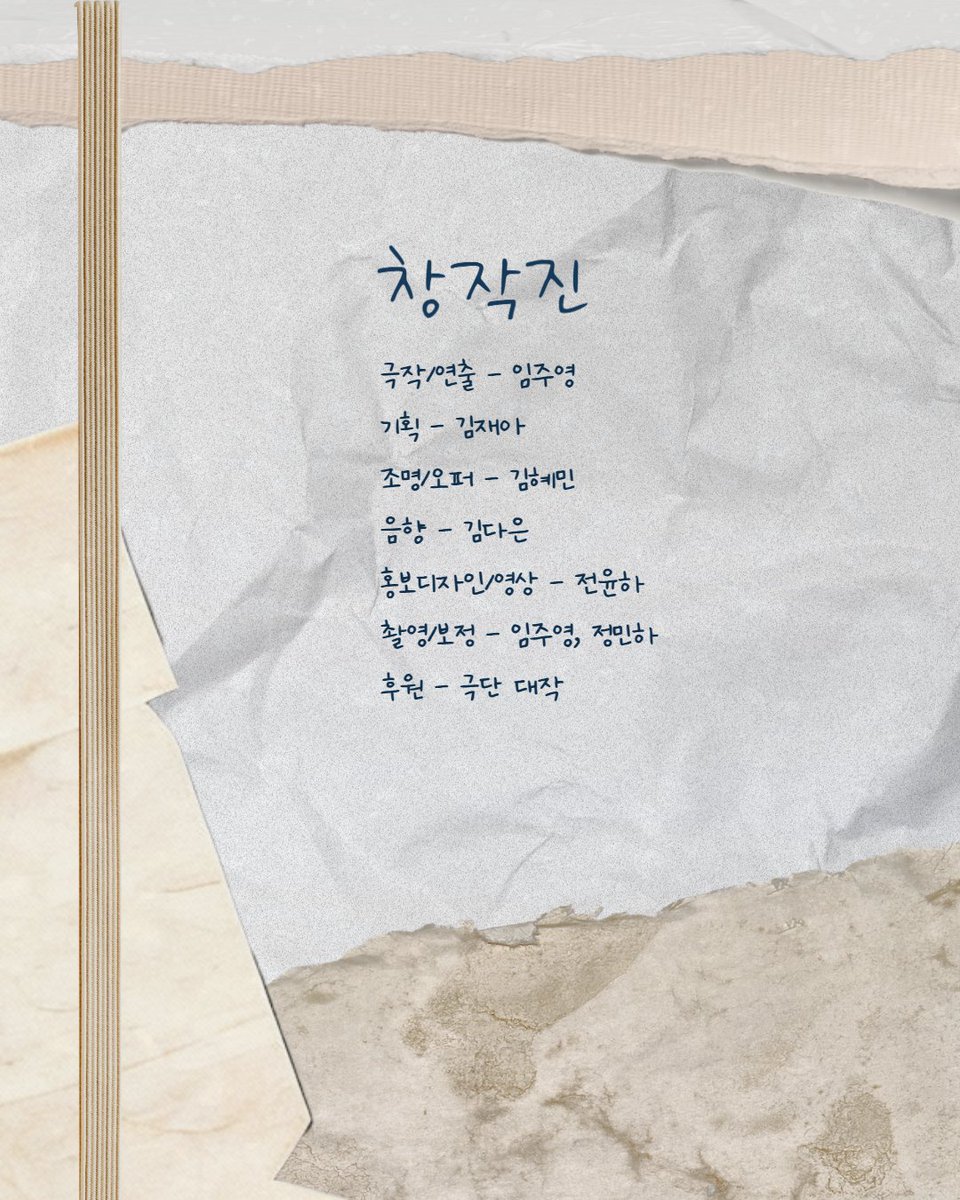 창작진
극작/연출 - 임주영
기획 - 김재아
조명/오퍼 - 김혜민
음향 - 김다은
홍보디자인/영상 - 전윤하
촬영/보정 - 임주영, 정민하
후원 - 극단 대작